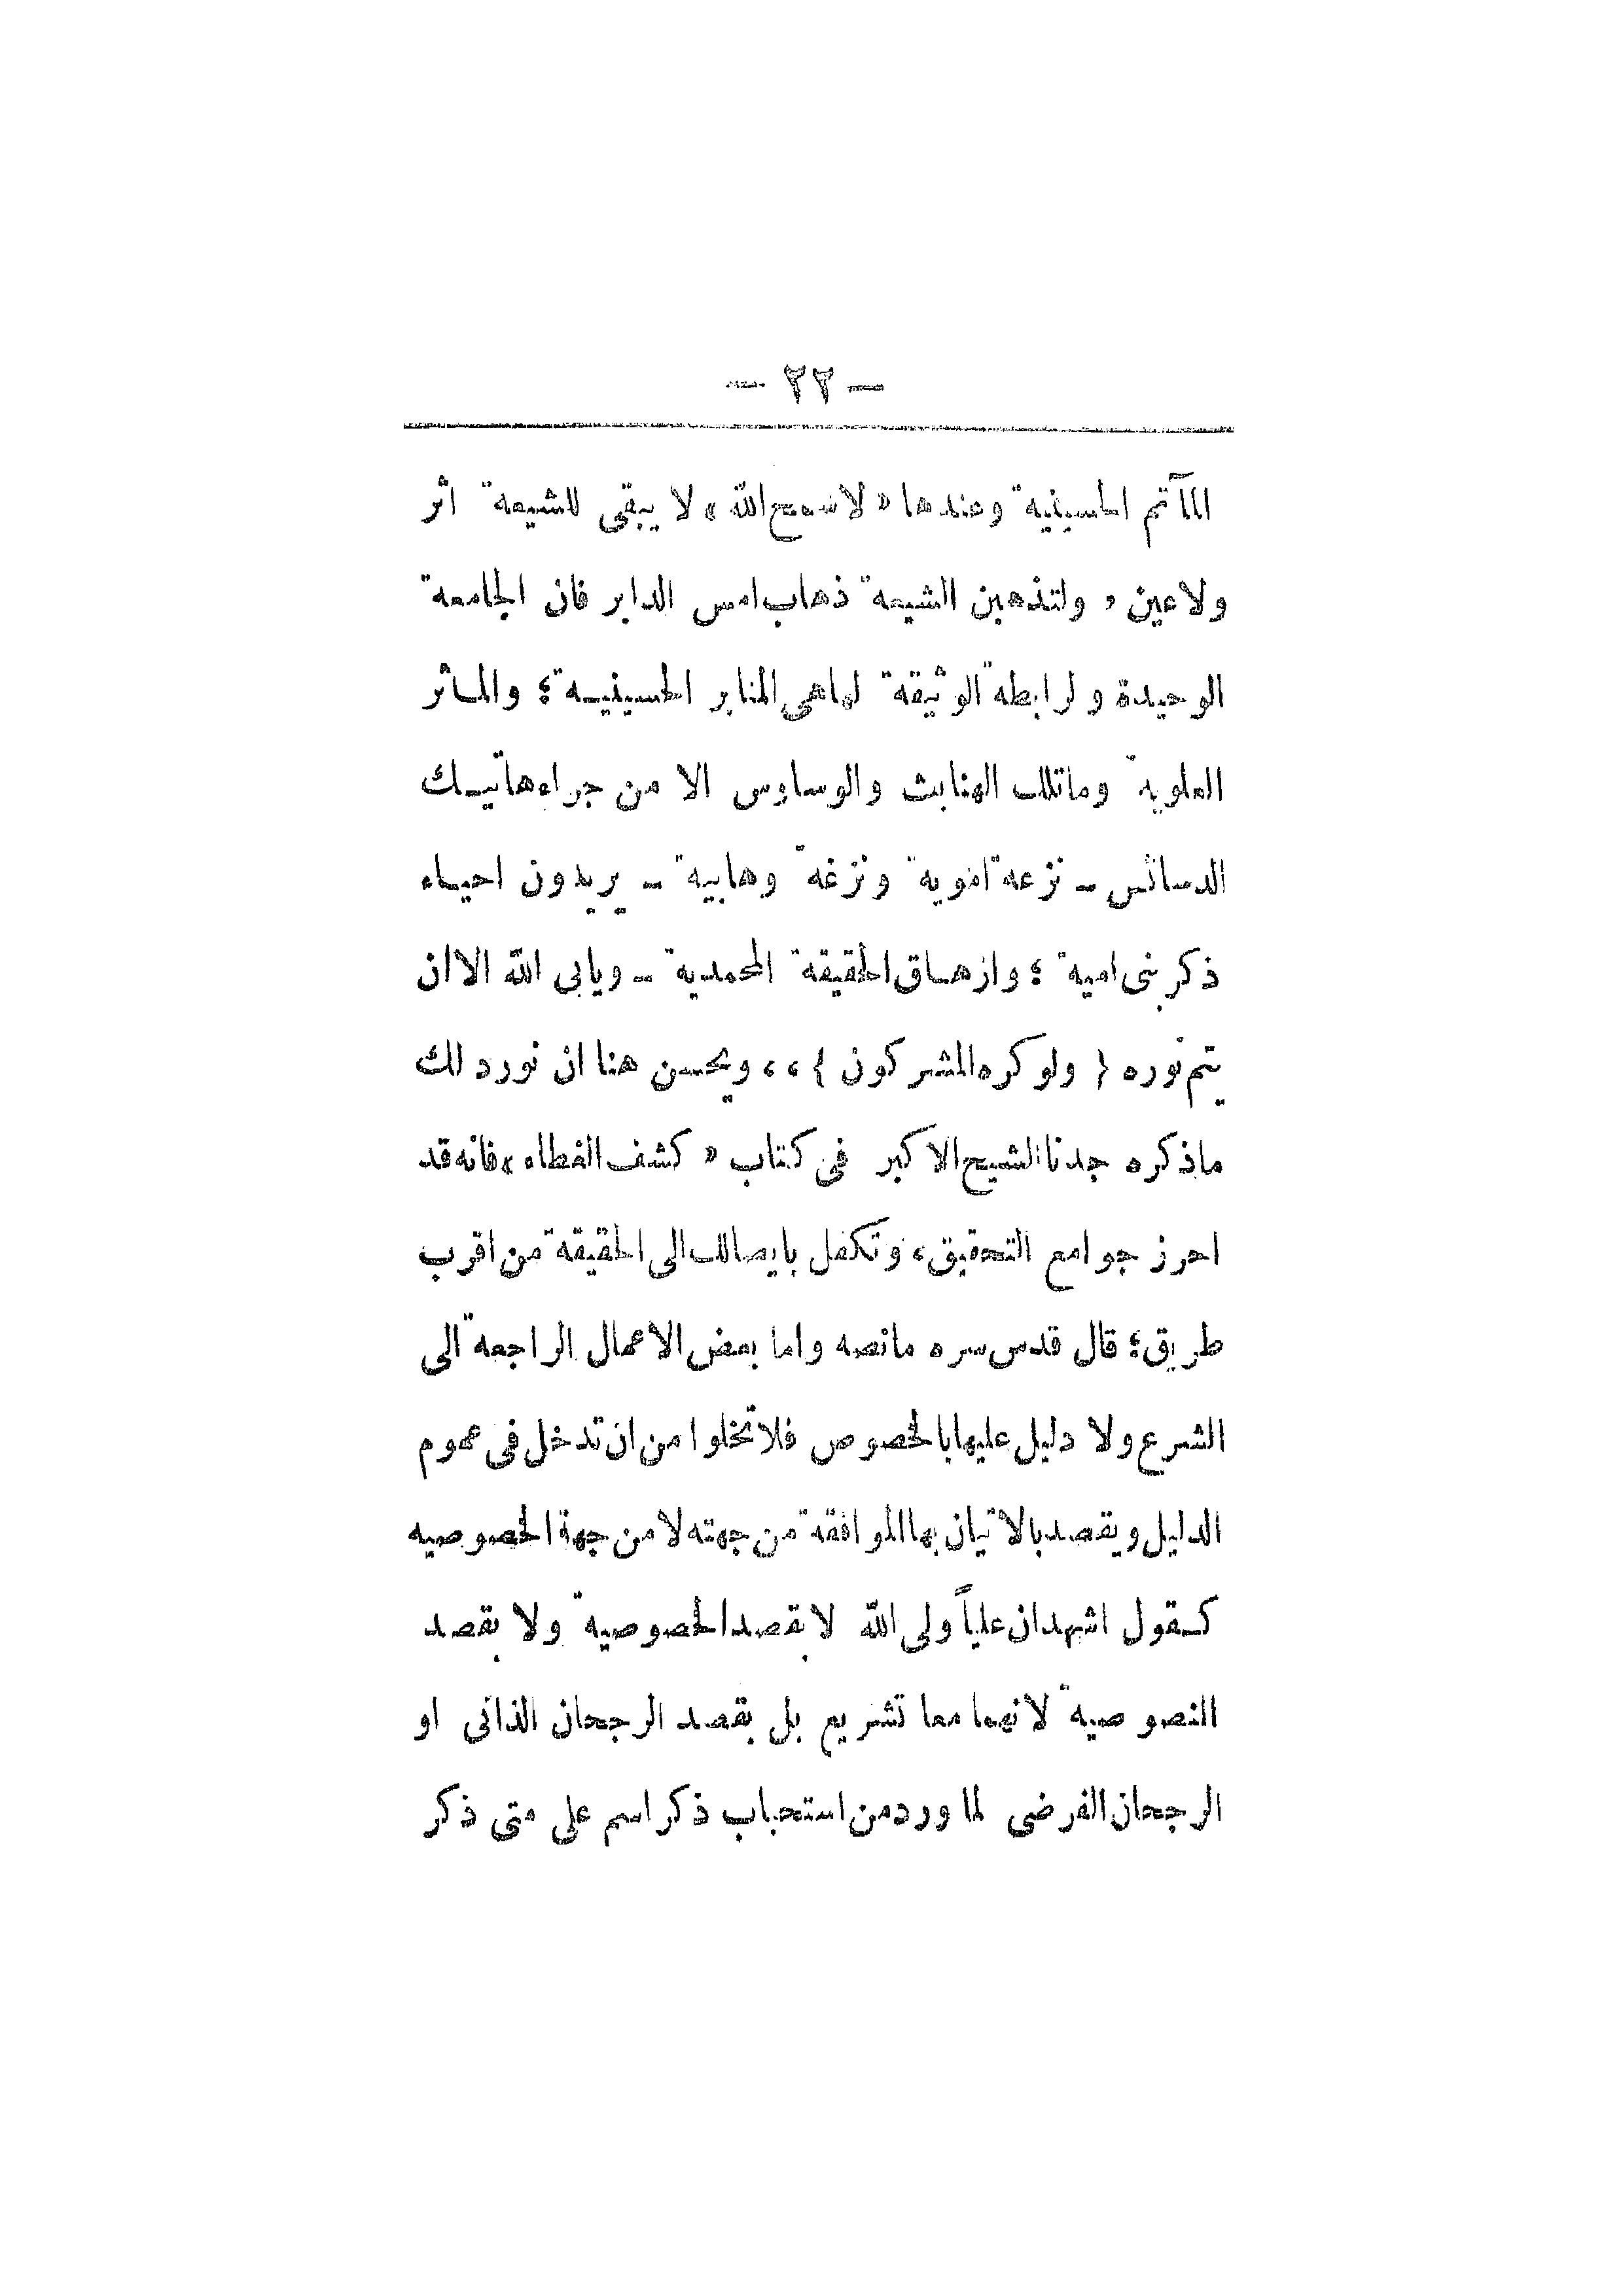 — ٢٢ —
المآتم الحسينية وعندها « لا سمح الله » لا يبقى للشيعة اثر
ولا عين ، ولتذهبن الشيعة ذهاب امس الدابر فان الجامعة
الوحيدة و لرابطه الوثيقة لها هي المنابر الحسينيـة ؛ والمـاثر
العلوية وما تلك الهنابث والوساوس الا من جراء هاتيـك
الدسائس ـ نزعة اموية ونزغة وهابية ـ يريدون احيـاء
ذكر بنى امية ؛ وازهـاق الحقيقة المحمدية ـ ويابى الله الا ان
يتم نوره { ولو كره المشركون } ،، ويحسن هنا ان نورد لك
ما ذكره جدنا الشيح الاكبر فى كتاب « كشف الغطاء » فانه قد
احرز جوامع التحقيق ، وتكفل بايصالك الى الحقيقة من اقرب
طريق ؛ قال قدس سره ما نصه واما بعض الاعمال الراجعة الى
الشرع ولا دليل عليها بالخصوص فلا تخلوا من ان تدخل فى عموم
الدليل ويقصد بالاتيان بها الموافقة من جهته لا من جهة الخصوصيه
كـقول اشهد ان علياً ولى الله لا بقصد الخصوصية ولا بقصد
النصوصية لانهما معا تشريع بل بقصد الرجحان الذاتى او
الرجحان الفرضى لما ورد من استحباب ذكر اسم على متى ذكر